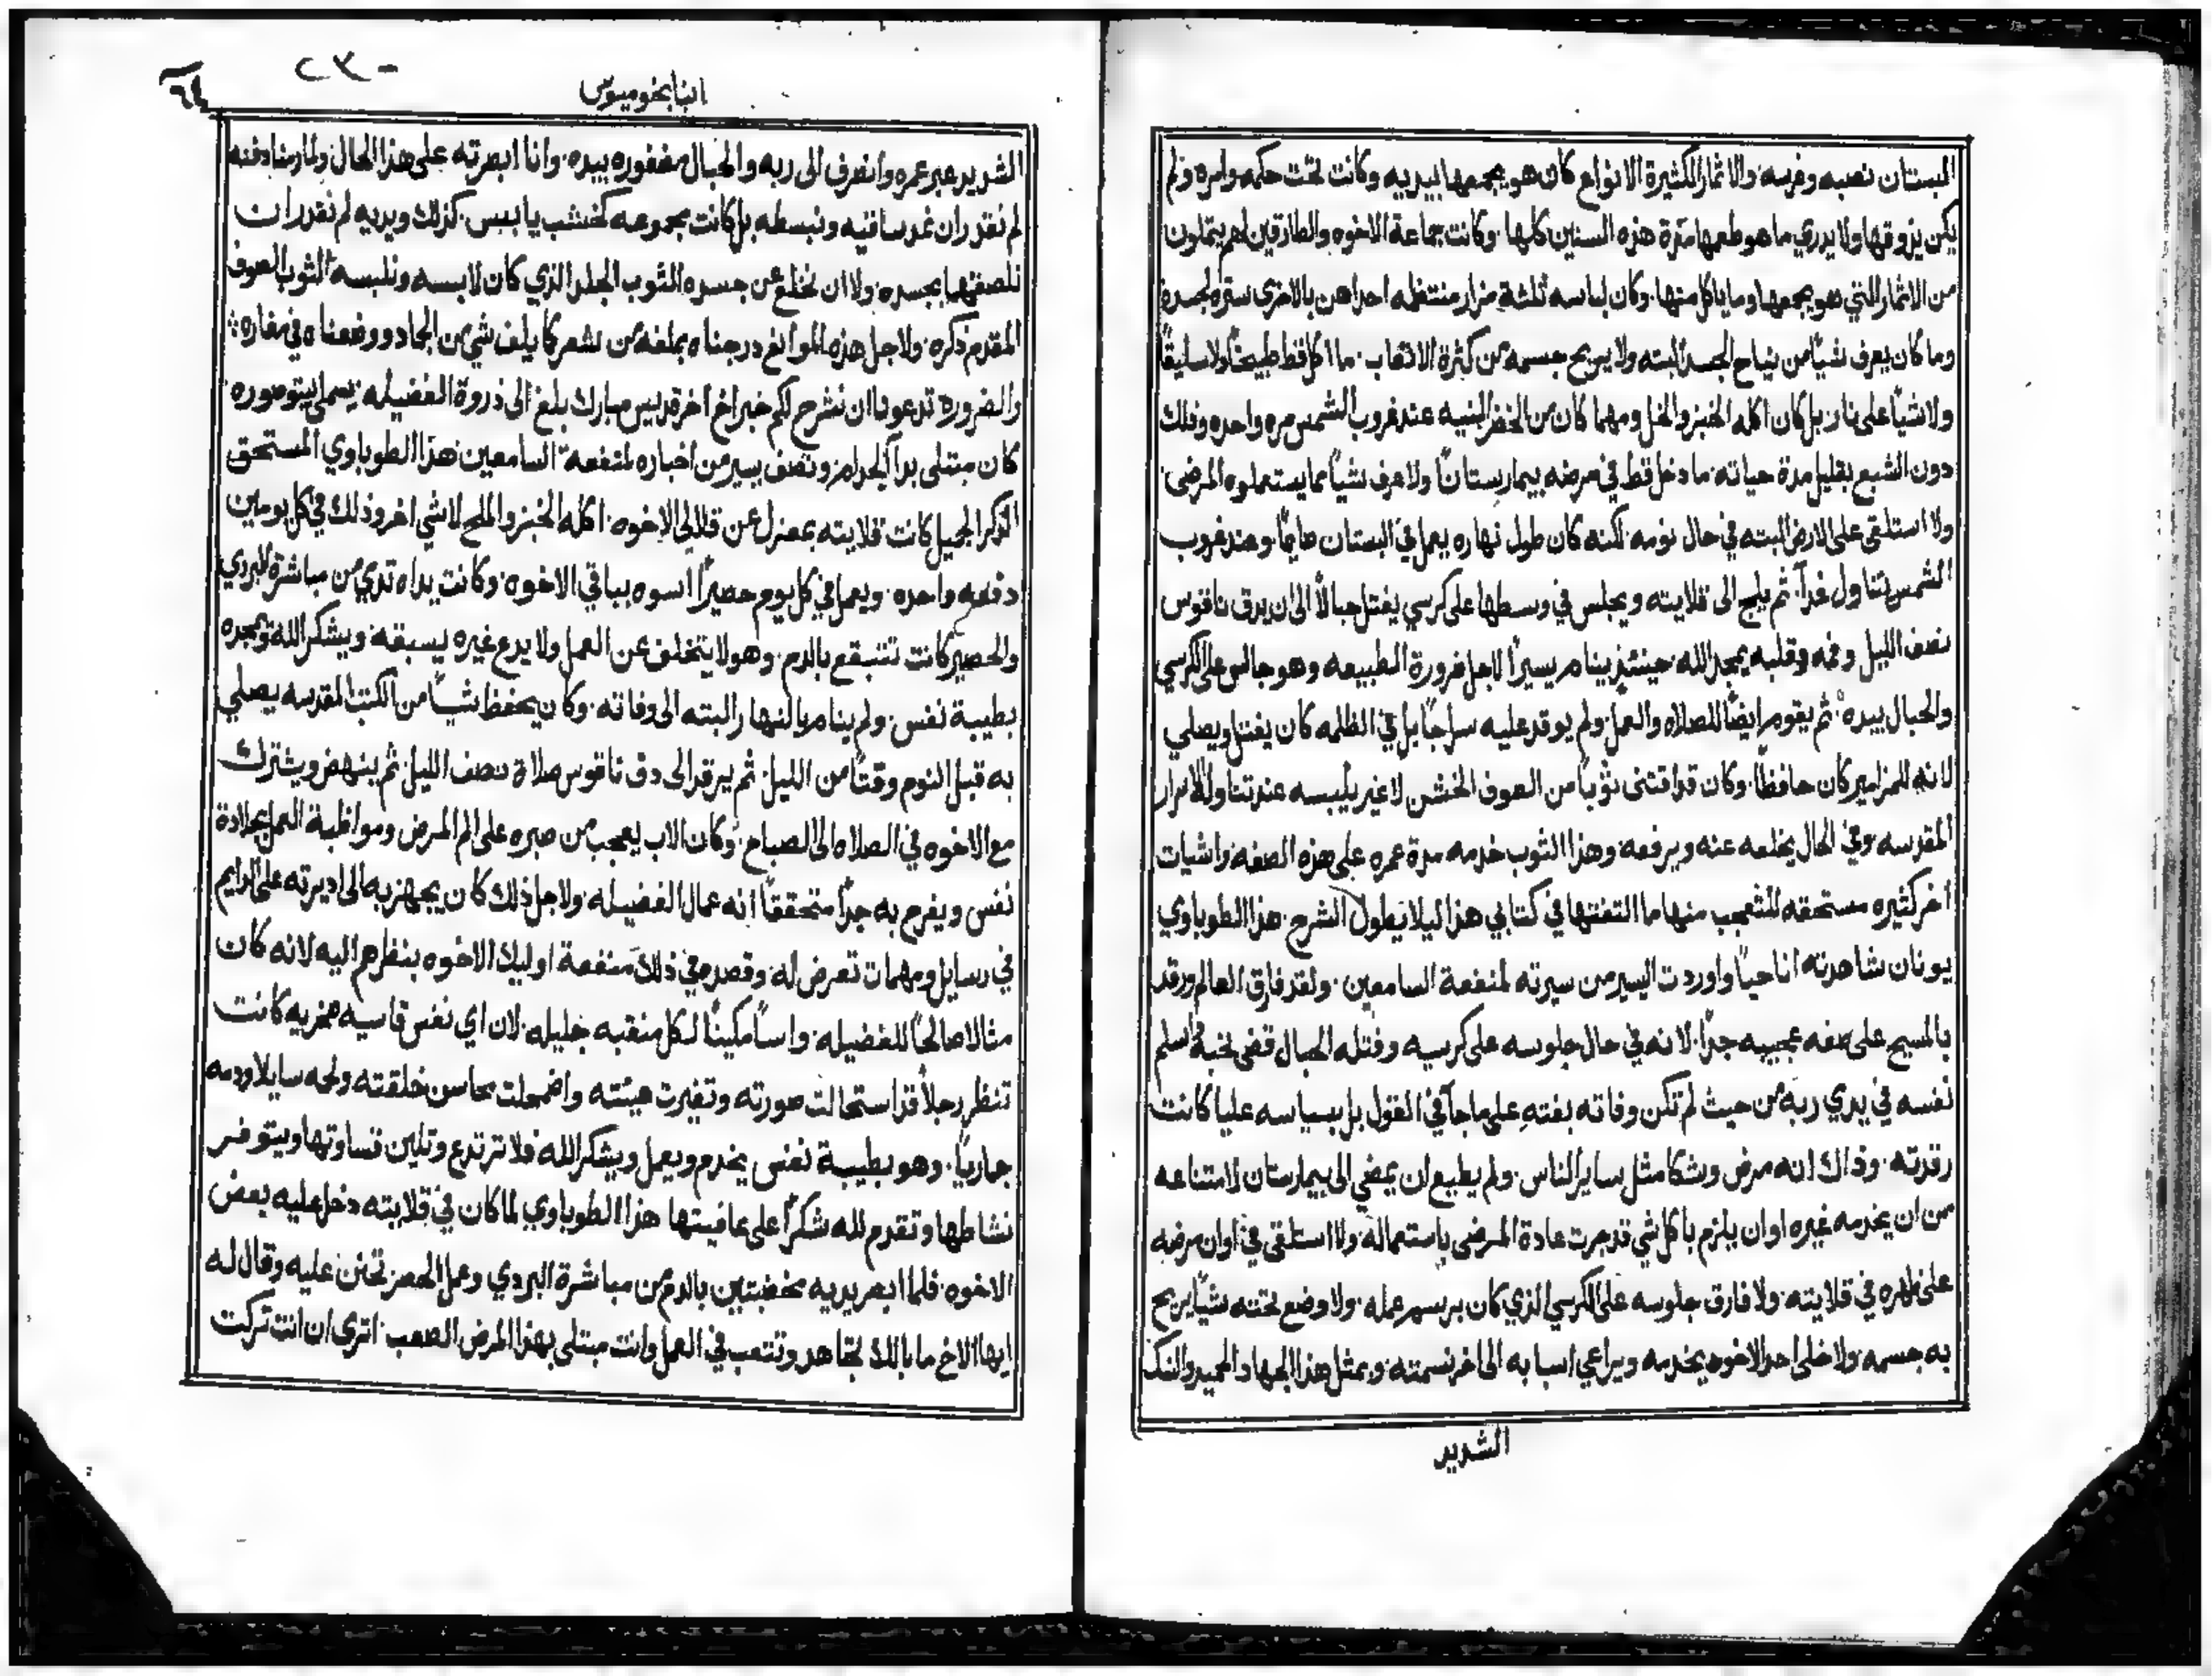 البستان نصبه وغرسه. والاثمار الكثيرة الانواع كان هو يجمعها بيديه وكانت تحت حكمه وامره ولم
يكن يذوقها ولا يدري ما هو طعمها مدة هذه السنين كلها. وكانت جماعة الاخوه والطارقين لهم يتملون
من الاثمار التي هو يجمعها وما ياكل منها. وكان لباسه ثلثة مزار منتظمه احداهن بالاخرى ستره لجسده
وما كان يعرف شياً من نياح الجسد البته ولا يريح جسمه من كثرة الاتعاب. ما اكل قط طبيخاً ولا سليقاً
ولا شياً على نار بل كان اكله الخبز والخل ومهما كان من الخضر النيه عند غروب الشمس مره واحده وذلك
دون الشبع بقليل مدة حياته. ما دخل قط في مرضه بيمارستاناً ولا عرف شياً مما يستعملوه المرضى.
ولا استلقى على الارض البته في حال نومه. لكنه كان طول نهاره يعمل في البستان صايماً وعند غروب
الشمس يتناول غداً. ثم يلج الى قلايته ويجلس في وسطها على كرسي يفتل حبالاً الى ان يدق ناقوس
نصف الليل وفمه وقلبه يمجد الله. حينئذ ينام يسيراً لاجل ضرورة الطبيعه وهو جالس على الكرسي
والحبال بيده. ثم يقوم ايضاً للصلاه والعمل. ولم يوقد عليه سراجاً بل في الظلمه كان يفتل ويصلي
لانه للمزامير كان حافظاً. وكان قد اقتنى ثوباً من الصوف الخشن لا غير يلبسه عند تناوله الاسرار
المقدسه وفي الحال يخلعه عنه ويرفعه. وهذا الثوب خدمه مدة عمره على هذه الصفه. واشيات
اخر كثيره مستحقه للتعجب منها ما التفتها في كتابي هذا ليلا يطول الشرح. هذا الطوباوي
يونان شاهدته انا حياً واوردت اليسير من سيرته لمنفعة السامعين. ولقد فارق العالم ورقد
بالمسيح على صفه عجيبه جداً. لانه في حال جلوسه على كرسيه وفتله الحبال قضى نحبه. اسلم
نفسه في يدي ربه من حيث لم تكن وفاته بغته على ما جآ في القول بل بسياسه عليا كانت
رقدته. وذاك انه مرض وشكا مثل ساير الناس. ولم يطيع ان يمضي الى بيمارستان لامتناعه
من ان يخدمه غيره او ان يلزم باكل شي قد جرت عادة المرضى باستعماله. ولا استلقى في اوان مرضه
على ظهره في قلايته. ولا فارق جلوسه على الكرسي الذي كان برسم عمله. ولا وضع تحته شياً يريح
به جسمه. ولا خلى احد الاخوه يخدمه ويراعي اسبابه الى اخر نسمته. وبمثل هذا الجهاد الحميد والنسك
الشديد
انبا بخوميوس
٦٤
الشديد عبر عمره وانصرف الى ربه والحبال مضفوره بيده. وانا ابصرته على هذا الحال. ولما رمنا دفنه
لم نقدر ان نمد ساقيه ونبسطه بل كانت مجموعه كخشب يابس. كذلك ويديه لم نقدر ان
نلصقها بجسده. ولا ان نخلع عن جسده الثوب الجلد الذي كان لابسه ونلبسه الثوب الصوف
المقدم ذكره. ولاجل هذه الموانع درجناه بملفه من شعر كما يلف شي من الجماد ووضعناه في مغاره:
والضروره تدعونا ان نشرح لكم خبر اخ اخر قديس مبارك بلغ الى ذروة الفضيله. يسمى بيتوصوره
كان مبتلى بدآ الجدام. ونصف يسير من اخباره لمنفعة السامعين. هذا الطوباوي المستحق
الذكر الجميل كانت قلايته بمعزل عن قلالي الاخوه. اكله الخبز والملح لا شي اخر وذلك في كل يومين
دفعه واحده. ويعمل في كل يوم حصيراً اسوه بباقي الاخوه. وكانت يداه تدي من مباشرة البردي
والحصير كانت تتبقع بالدم. وهو لا يتخلف عن العمل ولا يدع غيره يسبقه. ويشكر الله ويمجده
بطيبة نفس. ولم ينام بالنهار البته الى وفاته. وكان يحفظ شياً من الكتب المقدسه يصلي
به قبل النوم وقتاً من الليل. ثم يرقد الى دق ناقوس صلاة نصف الليل. ثم ينهض ويشترك
مع الاخوه في الصلاه الى الصباح. وكان الاب يعجب من صبره على الم المرض ومواظبة العمل بجلادة
نفس ويفرح به جداً متحققاً انه عمال الفضيله. ولاجل ذلك كان يجهز به الى اديرته على الدايم
في رسايل ومهمات تعرض له. وقصده في ذلك منفعة اوليك الاخوه بنظرهم اليه لانه كان
مثالا صالحاً للفضيله. واساً مكيناً لكل منقبه جليله. لان اي نفس قاسيه صخريه كانت
تنظر رجلاً قد استحالت صورته وتغيرت هيئته واضمحلت محاسن خلقته ولحمه سايلا ودمه
جارياً. وهو بطيبة نفس يخدم ويعمل ويشكر الله فلا ترتدع وتلين قساوتها ويتوفر
نشاطها وتقدم لله شكراً على عافيتها هذا الطوباوي لما كان في قلايته دخل عليه بعض
الاخوه. فلما ابصر يديه مخضبتين بالدم من مباشرة البردي وعمل الحصر تحنن عليه وقال له
ايها الاخ ما بالك تجاهد وتتعب في العمل وانت مبتلى بهذا المرض الصعب. اترى ان انت تركت